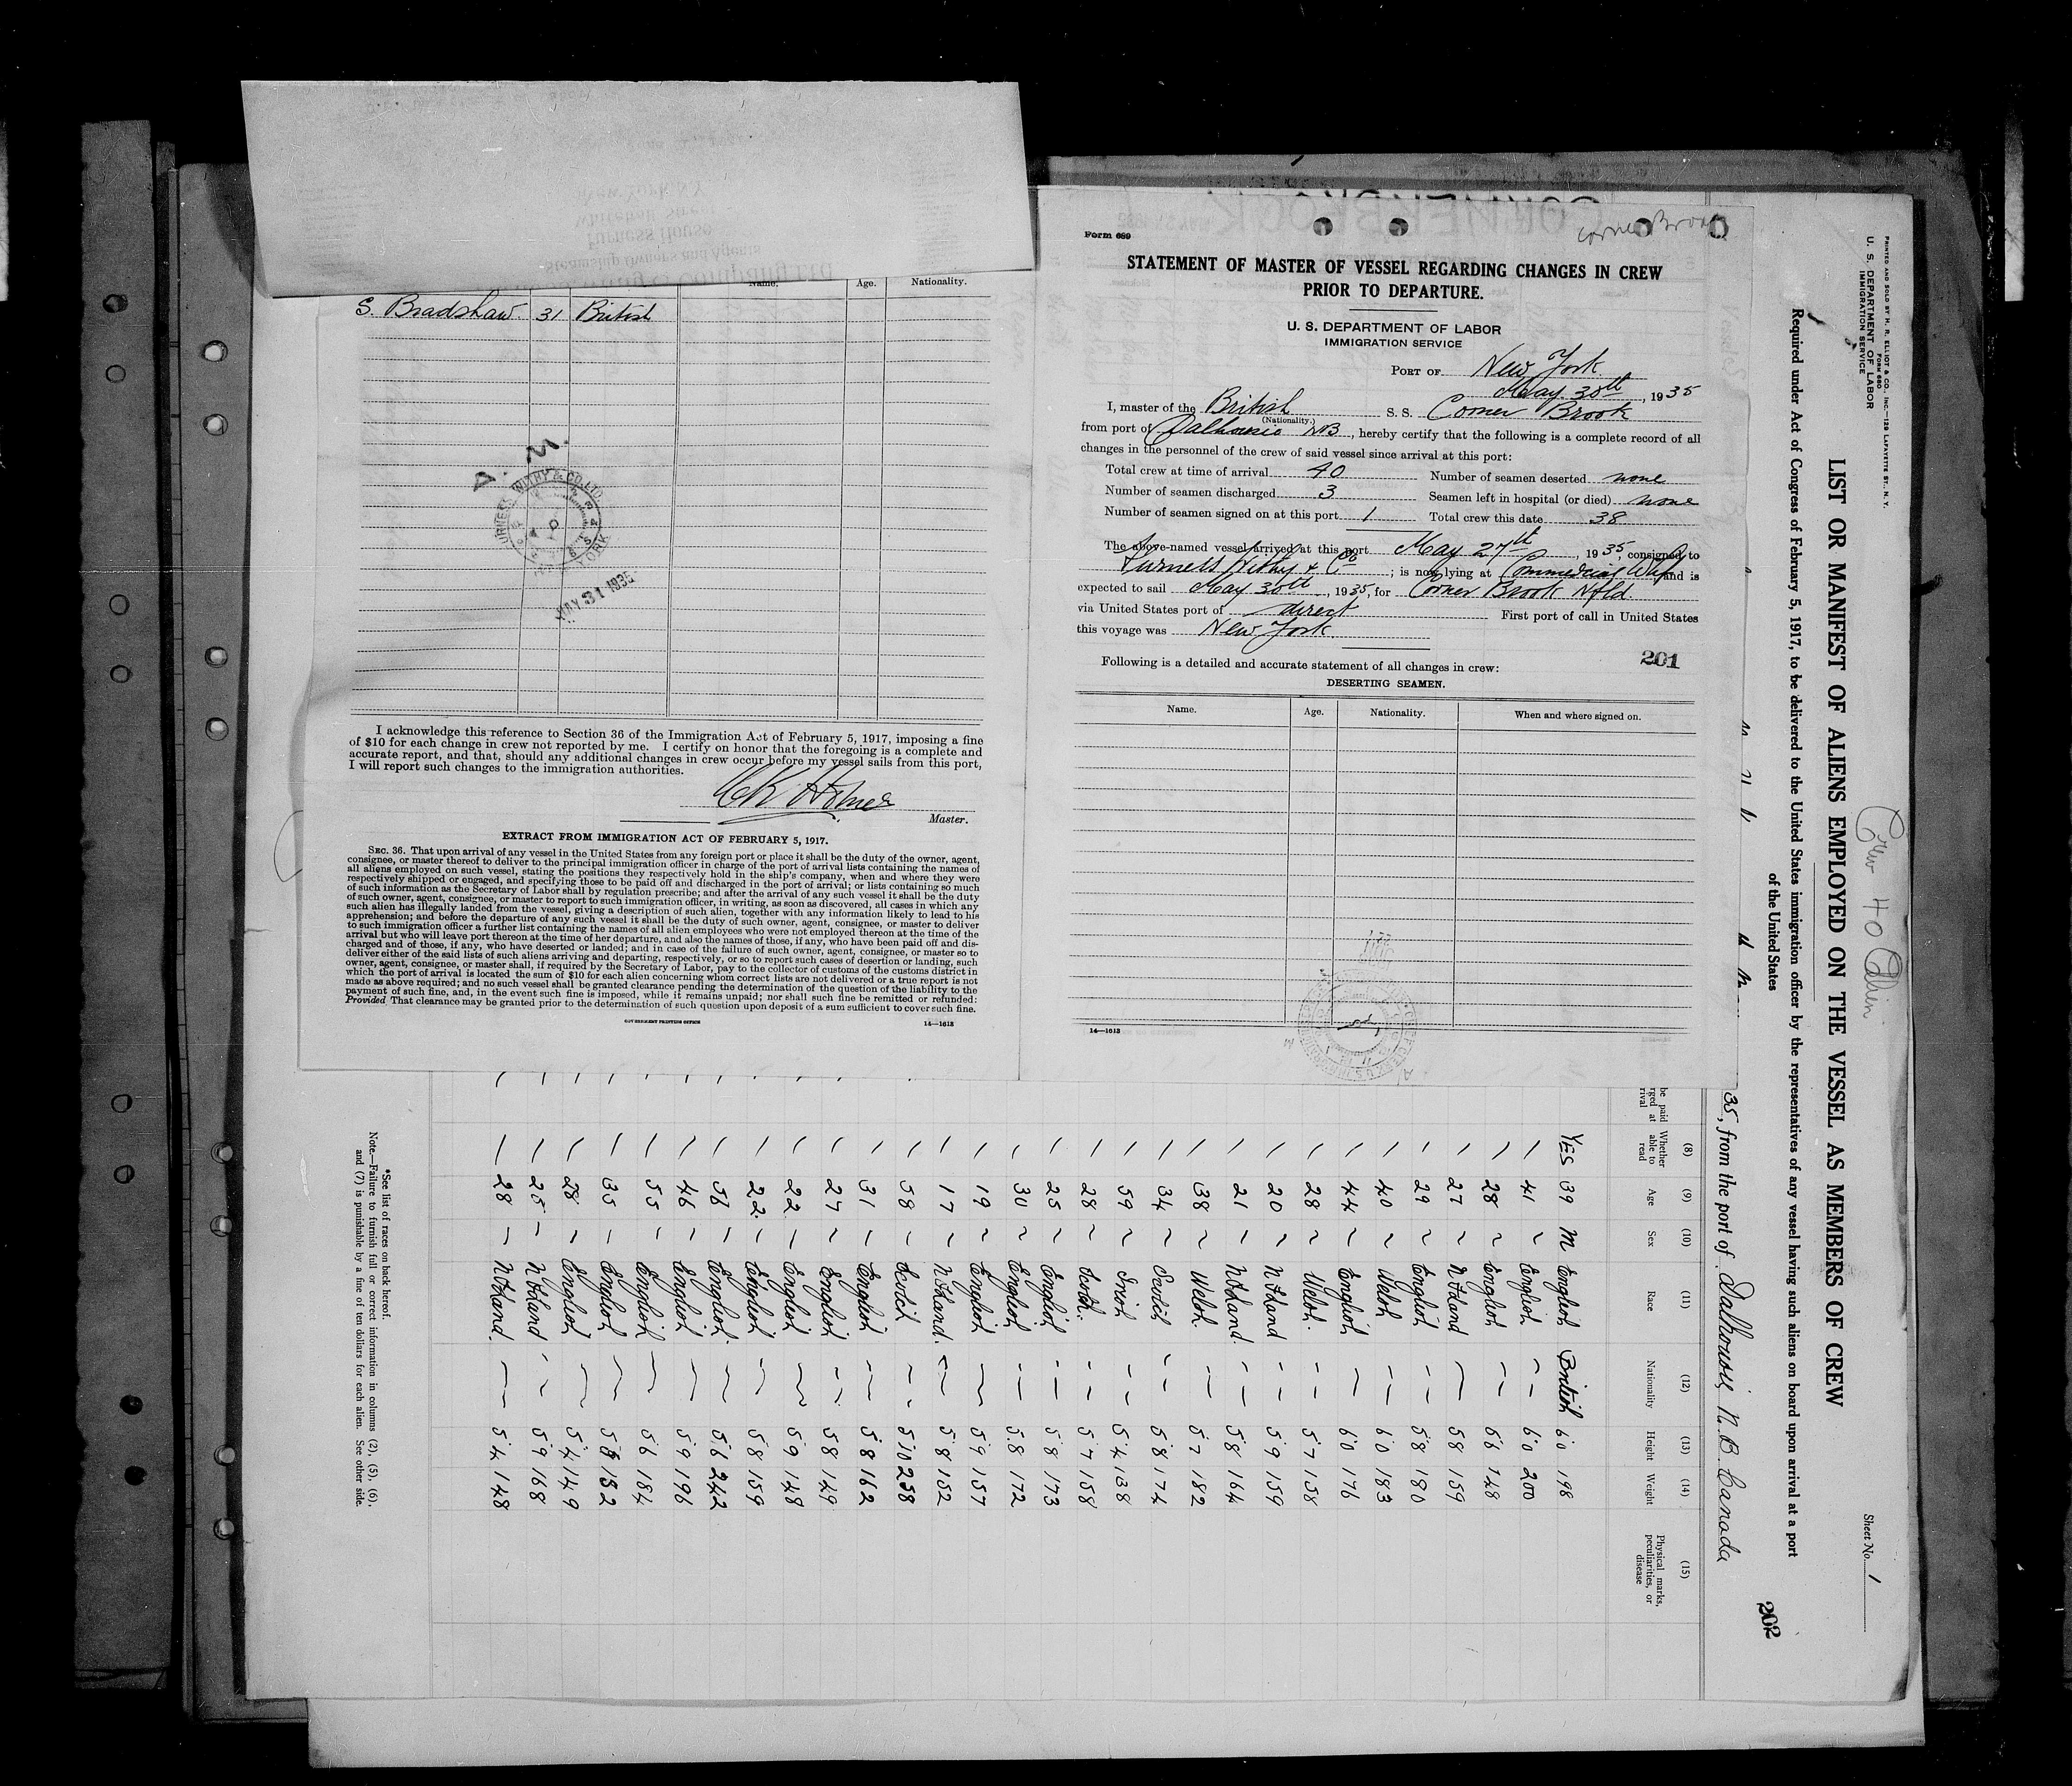 Name. Age. Nationality.
S. Bradshaw. 31 British
MAY 31 1935
I acknowledge this reference to Section 36 of the Immigration Act of February 5, 1917, imposing a fine
of $10 for each change in crew not reported by me. I certify on honor that the foregoing is a complete and
accurate report, and that, should any additional changes in crew occur before my vessel sails from this port,
I will report such changes to the immigration authorities.
Master.
EXTRACT FROM IMMIGRATION ACT OF FEBRUARY 5, 1917.
SEC. 36. That upon arrival of any vessel in the United States from any foreign port or place it shall be the duty of the owner, agent,
consignee, or master thereof to deliver to the principal immigration officer in charge of the port of arrival lists containing the names of
all aliens employed on such vessel, stating the positions they respectively hold in the ship's company, when and where they were
respectively shipped or engaged, and specifying those to be paid off and discharged in the port of arrival; or lists containing so much
of such information as the Secretary of Labor shall by regulation prescribe; and after the arrival of any such vessel it shall be the duty
of such owner, agent, consignee, or master to report to such immigration officer, in writing, as soon as discovered, all cases in which any
such alien has illegally landed from the vessel, giving a description of such alien, together with any information likely to lead to his
apprehension; and before the departure of any such vessel it shall be the duty of such owner, agent, consignee, or master to deliver
to such immigration officer a further list containing the names of all alien employees who were not employed thereon at the time of the
arrival but who will leave port thereon at the time of her departure, and also the names of those, if any, who have been paid off and dis-
charged and of those, if any, who have deserted or landed; and in case of the failure of such owner, agent, consignee, or master so to
deliver either of the said lists of such aliens arriving and departing, respectively, or so to report such cases of desertion or landing, such
owner, agent, consignee, or master shall, if required by the Secretary of Labor, pay to the collector of customs of the customs district in
which the port of arrival is located the sum of $10 for each alien concerning whom correct lists are not delivered or a true report is not
made as above required; and no such vessel shall be granted clearance pending the determination of the question of the liability to the
payment of such fine, and, in the event such fine is imposed, while it remains unpaid; nor shall such fine be remitted or refunded:
Provided That clearance may be granted prior to the determination of such question upon deposit of a sum sufficient to cover such fine.
GOVERNMENT PRINTING OFFICE 14—1613
Corner Brook
Form 689
STATEMENT OF MASTER OF VESSEL REGARDING CHANGES IN CREW
PRIOR TO DEPARTURE.
U. S. DEPARTMENT OF LABOR
IMMIGRATION SERVICE
PORT OF New York
May. 30th, 1935
I, master of the British S. S. Corner Brook
(Nationality.)
from port of Dalhousie NB, hereby certify that the following is a complete record of all
changes in the personnel of the crew of said vessel since arrival at this port:
Total crew at time of arrival 40 Number of seamen deserted none
Number of seamen discharged 3 Seamen left in hospital (or died) none
Number of seamen signed on at this port 1 Total crew this date 38
The above-named vessel arrived at this port May 27th, 1935, consigned to
Furness Withy & Co; is now lying at Commercial Whf and is
expected to sail May 30th, 1935, for Corner Brook Nfld
via United States port of direct First port of call in United States
this voyage was New York
201
Following is a detailed and accurate statement of all changes in crew:
DESERTING SEAMEN.
Name. Age. Nationality. When and where signed on.
14—1613
PRINTED AND SOLD BY H. R. ELLIOT & CO., INC.—129 LAFAYETTE ST., N. Y.
FORM 680
U. S. DEPARTMENT OF LABOR
IMMIGRATION SERVICE
Sheet No. 1
Crew 40
LIST OR MANIFEST OF ALIENS EMPLOYED ON THE VESSEL AS MEMBERS OF CREW
Required under Act of Congress of February 5, 1917, to be delivered to the United States immigration officer by the representatives of any vessel having such aliens on board upon arrival at a port
of the United States
202
35, from the port of Dalhousie, N.B. Canada
(8) (9) (10) (11) (12) (13) (14) (15)
Whether able to read Age Sex Race Nationality Height Weight Physical marks, peculiarities, or disease
YES 39 M English British 6 0 198
41 English 6 0 200
28 English 5 6 148
27 Nfland 5 8 159
29 English 5 8 180
40 Welsh 6 0 183
44 English 6 0 176
28 Welsh. 5 7 158
20 Nfland 5 9 159
21 Nfland 5 8 164
38 Welsh 5 7 182
34 Scotch 5 8 174
59 Irish 5 4 138
28 Scotch 5 7 158
25 English 5 8 173
30 English 5 8 172
19 English 5 9 157
17 Nfland. 5 8 152
58 Scotch 5 10 238
31 English 5 8 162
27 English 5 8 149
22 English 5 9 148
22 English 5 8 159
36 English 5 6 242
46 English 5 9 196
55 English 5 6 184
35 English 132
28 English 5 4 149
25 Nfland 5 9 168
28 Nfland 5 4 148
*See list of races on back hereof.
Note.—Failure to furnish full or correct information in columns (2), (5), (6),
and (7) is punishable by a fine of ten dollars for each alien. See other side.